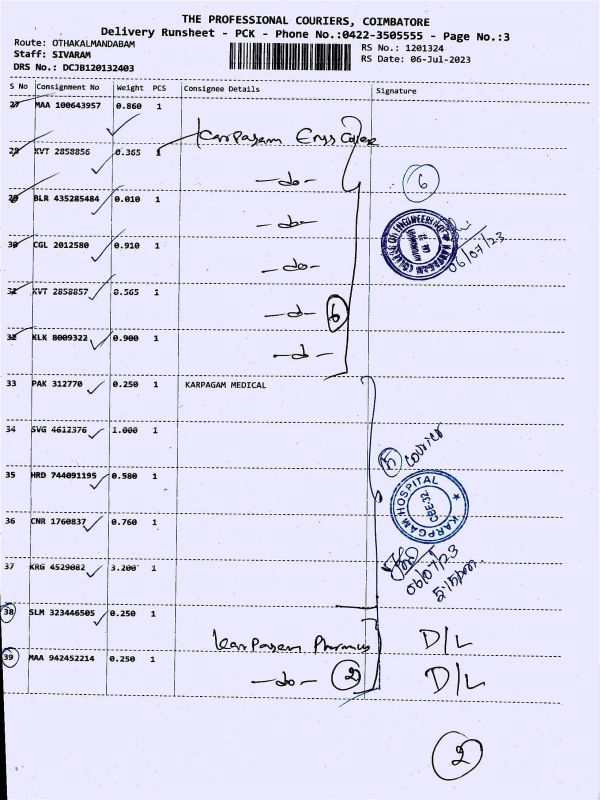 THE PROFESSIONAL COURIERS, COIMBATORE
Delivery Runsheet - PCK - Phone No.:0422-3505555 - Page No.:3
Route: OTHAKALMANDABAM
Staff: SIVARAM
DRS No.: DCJB120132403
RS No.: 1201324
RS Date: 06-Jul-2023
S No Consignment No Weight PCS Consignee Details Signature
27 MAA 100643957 0.860 1
Karpagam Engg College
28 KVT 2858856 0.365 1
-do-
29 BLR 435285484 0.010 1
-do-
6
30 CGL 2012580 0.910 1
-do-
KARPAGAM COLLEGE OF ENGINEERING
06/07/23
31 KVT 2858857 0.565 1
-do- 6
32 KLK 8009322 0.900 1
-do-
33 PAK 312770 0.250 1 KARPAGAM MEDICAL
34 SVG 4612376 1.000 1
5 courier
35 HRD 744091195 0.580 1
KARPGAM HOSPITAL
CBE-32
36 CNR 1760837 0.760 1
37 KRG 4529082 3.200 1
06/07/23
5:15pm
38 SLM 323446505 0.250 1
Karpagam D/L
39 MAA 942452214 0.250 1
-do- 2 D/L
2